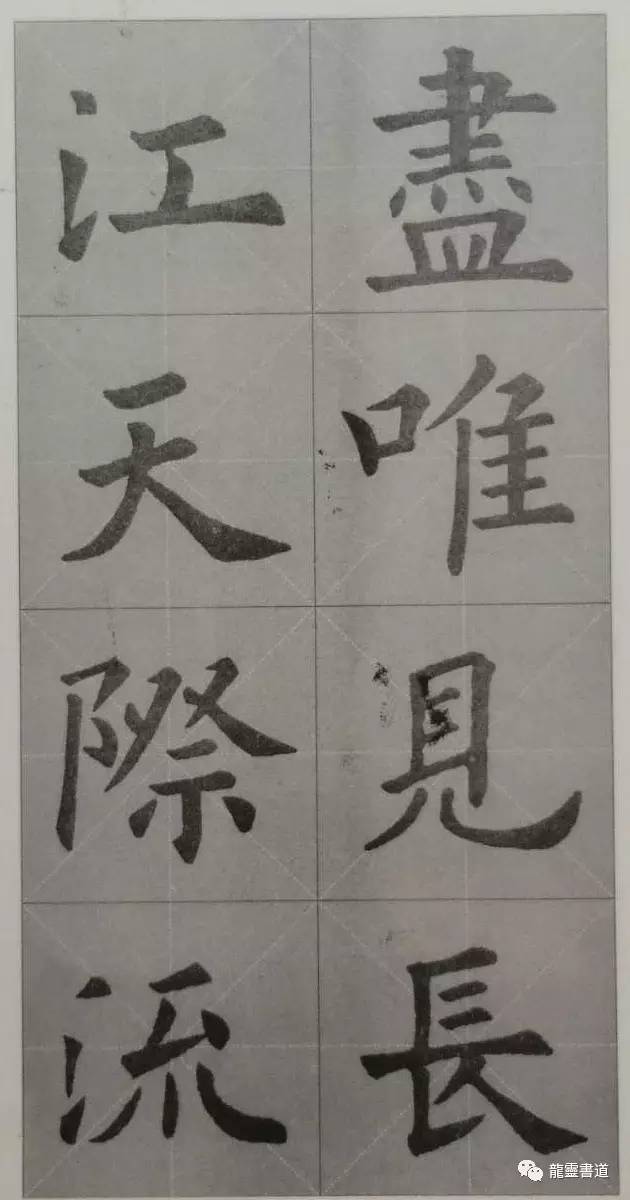 盡唯見長
江天際流
龍靈書道